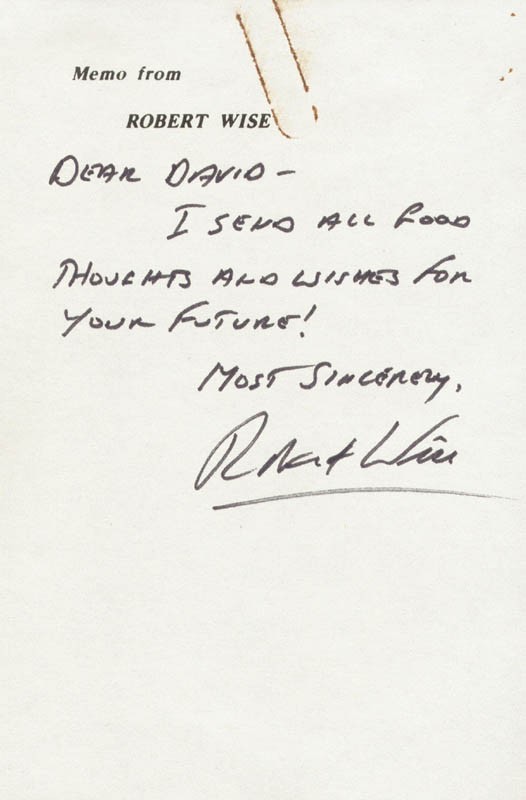 Memo from
ROBERT WISE
DEAR DAVID –
I SEND ALL GOOD
THOUGHTS AND WISHES FOR
YOUR FUTURE!
MOST SINCERELY,
Robert Wise